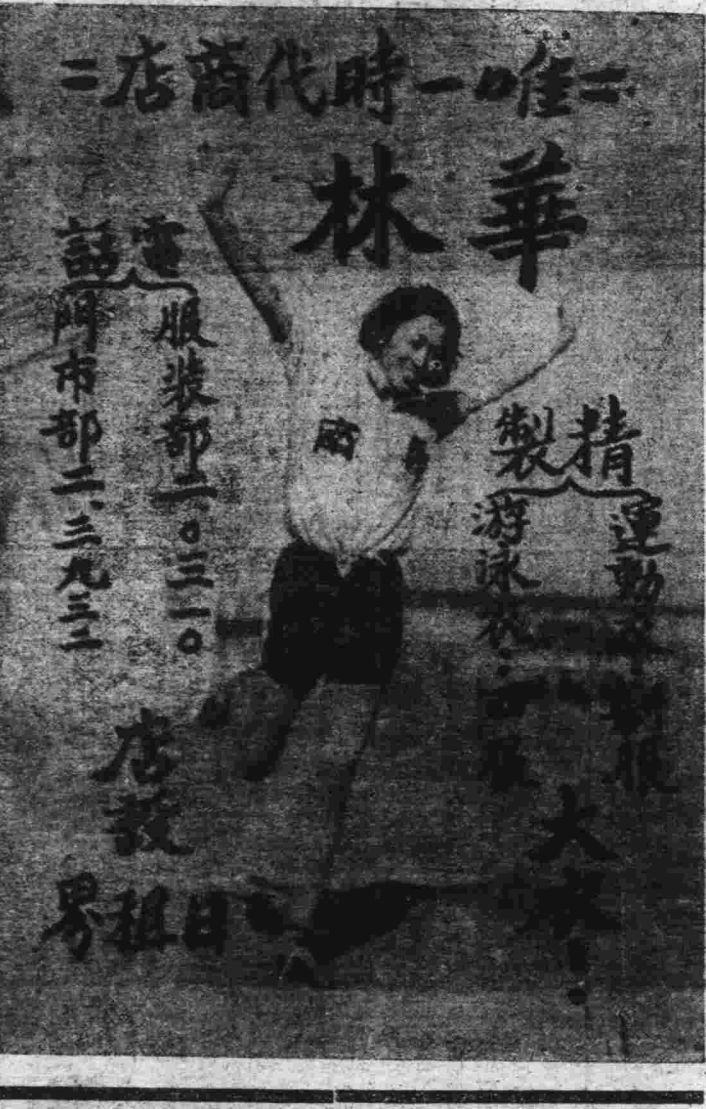 =唯一時代商店=
華林
精製
運動衣 制服
游泳衣
大衣
電話
服裝部二.〇三一〇
門市部二.三九三二
店設
日租界